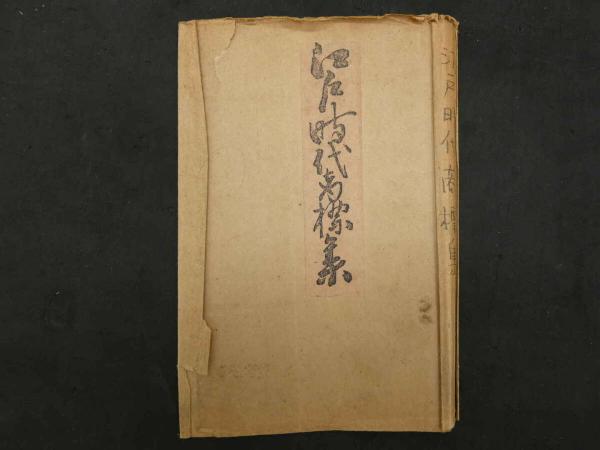 江戸時代商標集
江戸時代商標集